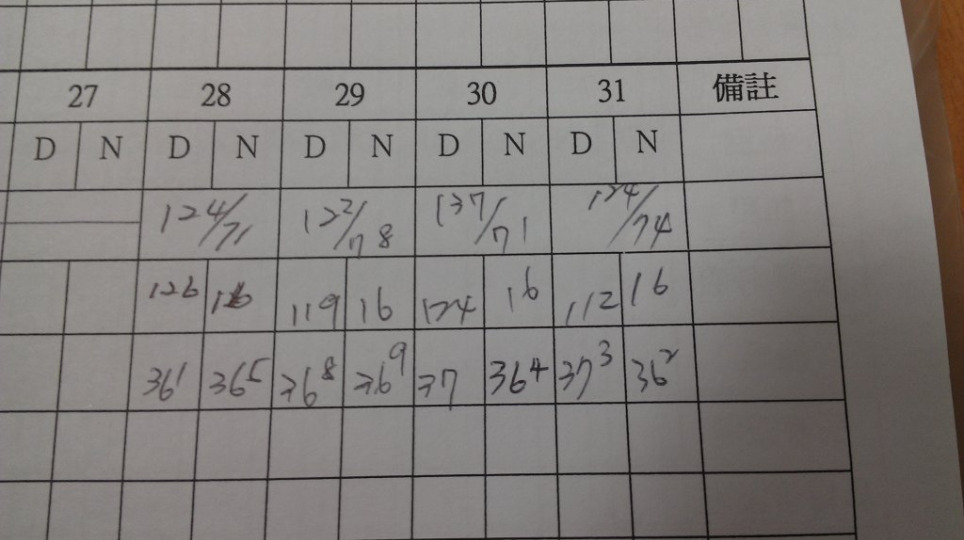 27 28 29 30 31 備註
D N D N D N D N D N
124/71 122/78 137/71 124/74
126 16 119 16 124 16 112 16
36¹ 36⁵ 36⁸ 36⁹ 37 36⁴ 37³ 36²